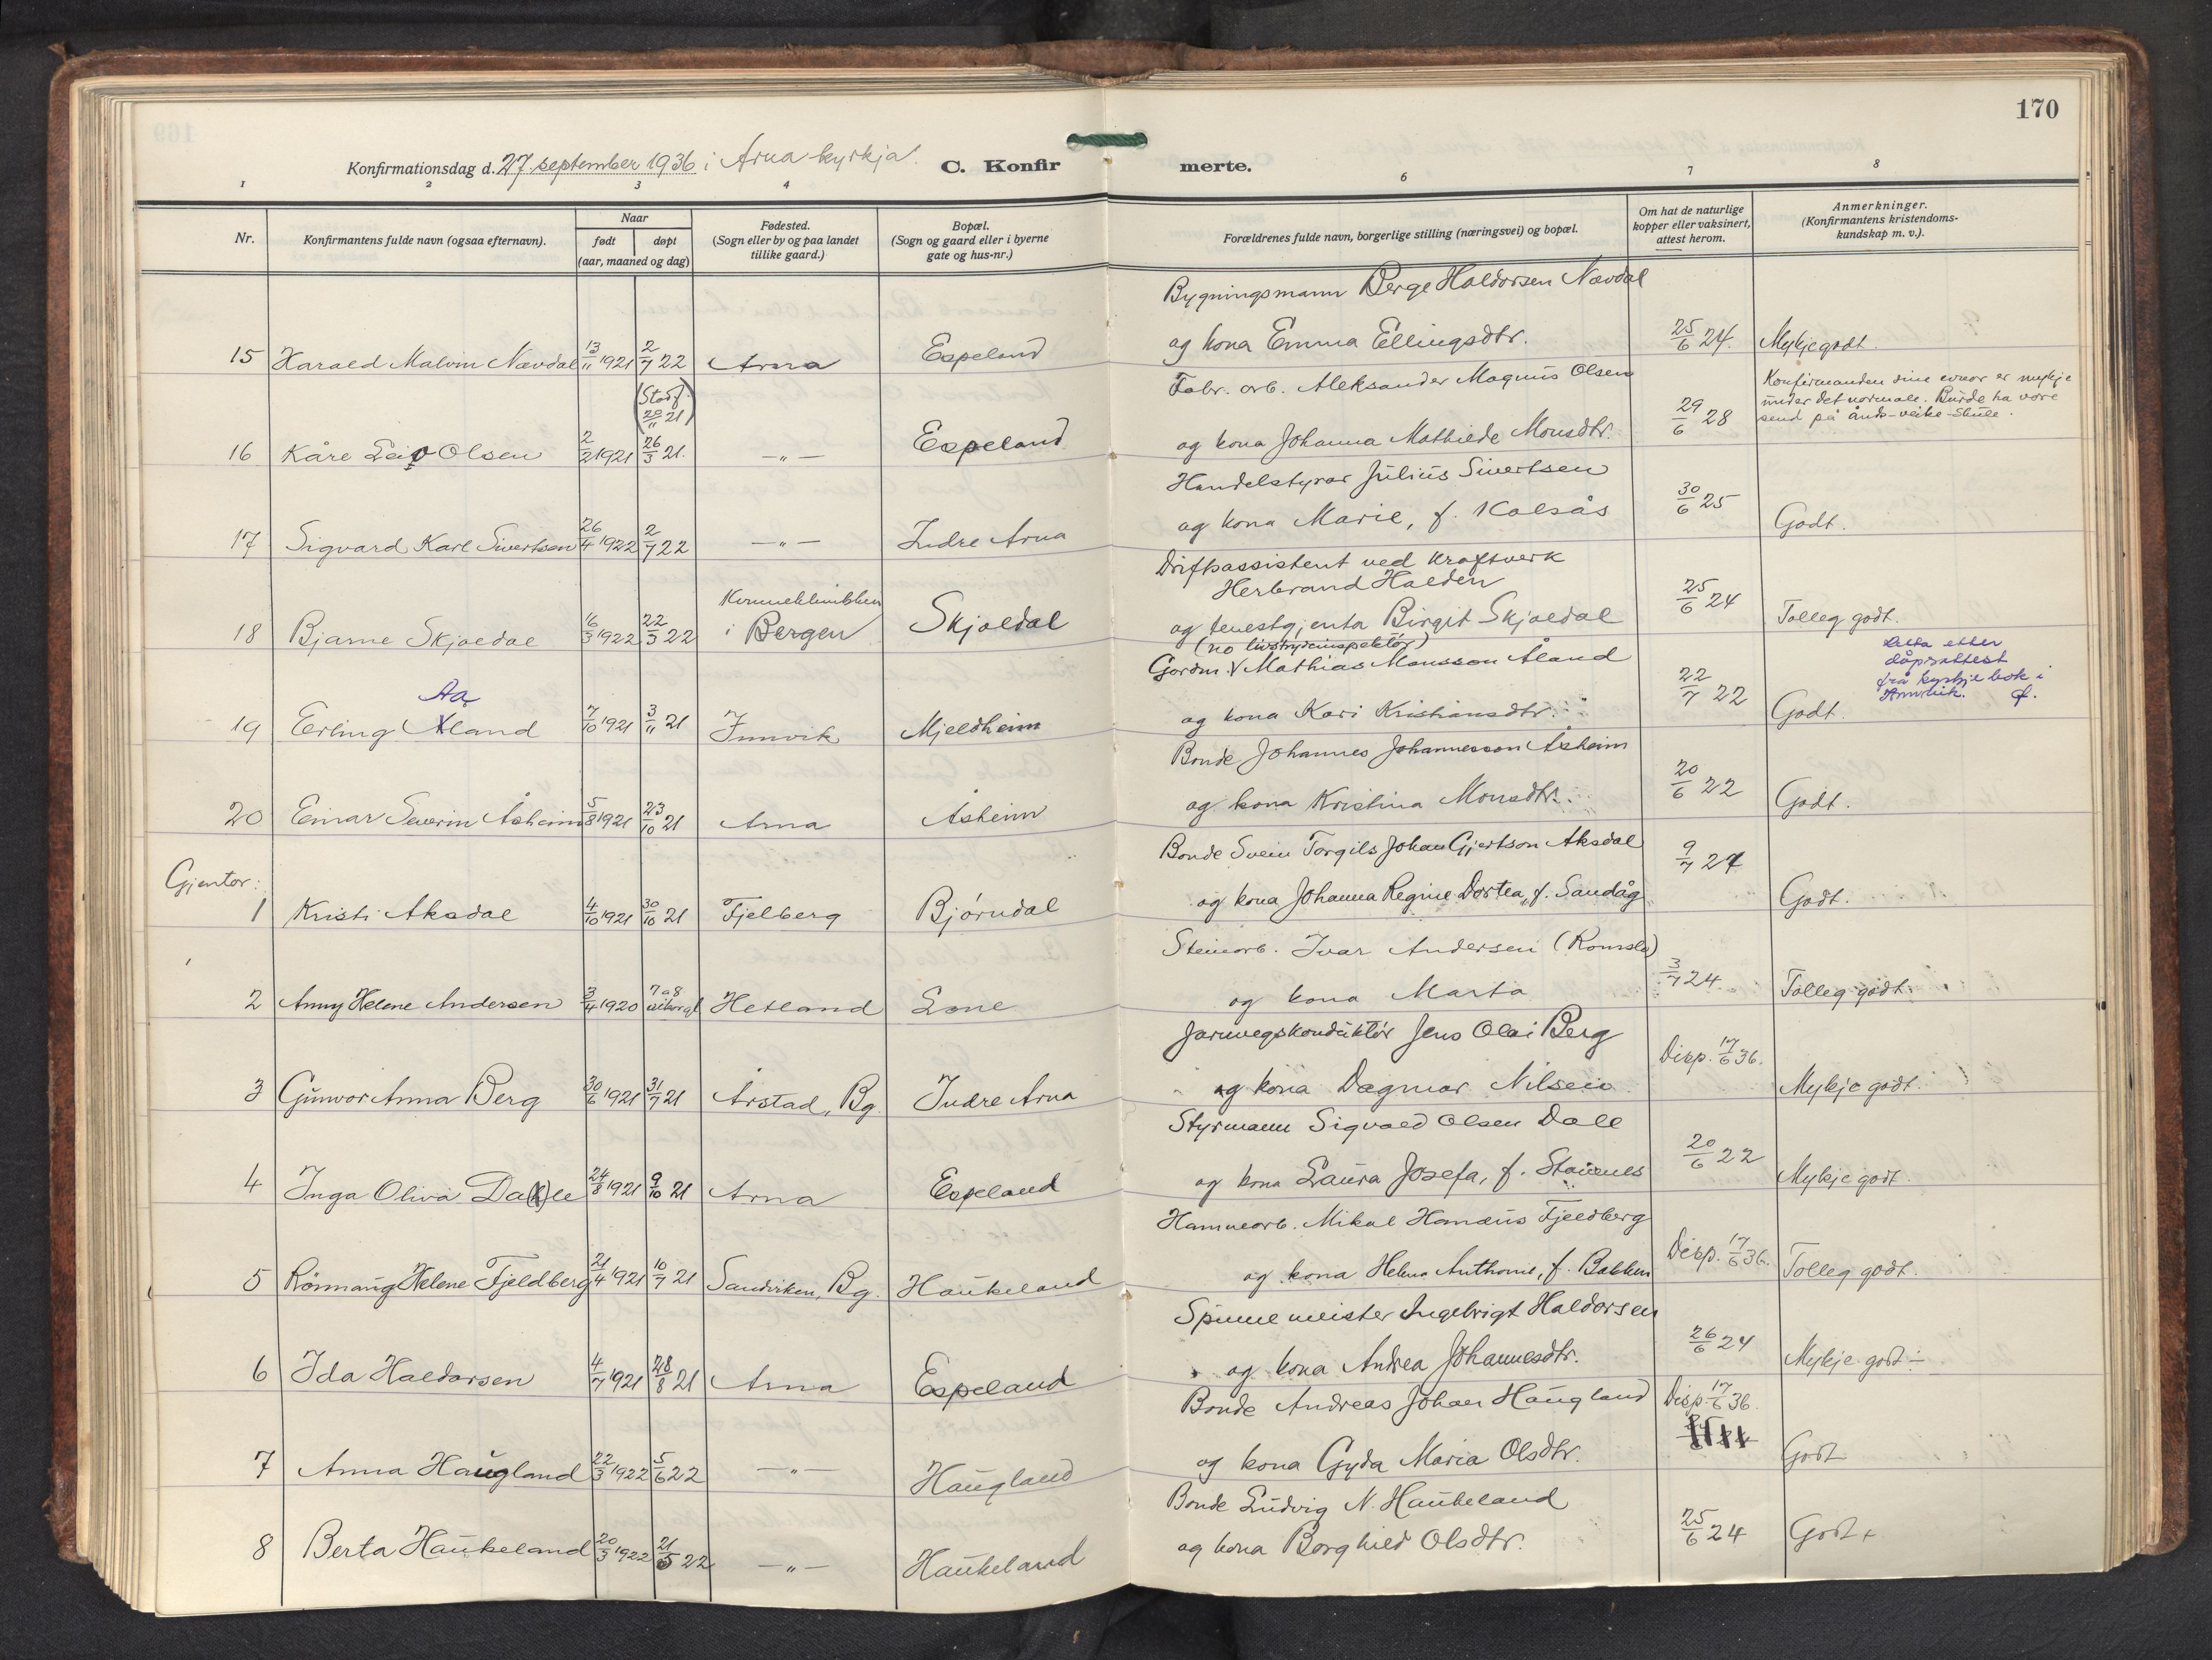 170
Konfirmationsdag d. 27. september 1936 i Arna kyrkja.
C. Konfir merte.
1 2 3 4 6 7 8
Nr.
Konfirmantens fulde navn (ogsaa efternavn).
Naar
født døpt
(aar, maaned og dag)
Fødested.
(Sogn eller by og paa landet
tillike gaard.)
Bopæl.
(Sogn og gaard eller i byerne
gate og hus-nr.)
Forældrenes fulde navn, borgerlige stilling (næringsvei) og bopæl.
Om hat de naturlige
kopper eller vaksinert,
attest herom.
Anmerkninger.
(Konfirmantens kristendoms-
kundskap m. v.).
Bygningsmann Berge Haldorsen Nævdal
15 Harald Malvin Nævdal 13/11 1921 2/7 22 Arna Espeland og kona Emma Ellingsdtr. 25/6 24. Mykje godt.
(Stadf. 20/11 21)
Fabr. arb. Aleksander Magnus Olsen
Konfirmanden sine evnor er mykje
under det normale. Burde ha vore
send på ånds-veike-skule.
16 Kåre Leiv Olsen 2/2 1921 26/3 21. —„— Espeland og kona Johanna Mathilde Monsdtr. 29/6 28
Handelstyrar Julius Sivertsen
17 Sigvard Karl Sivertsen 26/4 1922 2/7 22 —„— Indre Arna og kona Marie, f. Kolsås 30/6 25 Godt.
Driftsassistent ved kraftverk
Herbrand Halden
18 Bjarne Skjoldal 16/3 1922 22/3 22 i Bergen Skjoldal og tenestgjenta Birgit Skjoldal 25/6 24 Tolleg godt.
Gardm. Mathias Monsson Åland
Aa
19 Erling Åland 7/10 1921 3/11 21 Innvik Mjeldheim og kona Kari Kristiansdtr. 22/7 22 Godt.
etter
dåpsattest
frå kyrkjebok i
Innvik.
Bonde Johannes Johannesson Åsheim
20 Einar Severin Åsheim 5/8 1921 23/10 21 Arna Åsheim og kona Kristina Monsdtr. 20/6 22 Godt.
Gjentor:
Bonde Svein Torgils Johan Gjertson Aksdal
1 Kristi Aksdal 4/10 1921 30/10 21 Fjelberg Bjørndal og kona Johanna Regine Dortea, f. Sandåg 9/7 27 Godt.
Steinarb. Ivar Andersen (Romslo)
2 Anny Helene Andersen 3/4 1920 Hetland Lone og kona Marta 3/7 24 Tolleg godt.
Jarnvegskonduktør Jens Olai Berg
3 Gunvor Anna Berg 30/6 1921 31/7 21 Årstad, Bg. Indre Arna og kona Dagmar Nilsen Disp. 17/6 36. Mykje godt.
Styrmann Sigvald Olsen Dale
4 Inga Oliva Da(h)le 24/8 1921 9/10 21 Arna Espeland og kona Laura Josefa, f. Stavnes 20/6 22 Mykje godt.
Hamnearb. Mikal Homæus Fjeldberg
5 Rönnaug Helene Fjeldberg 21/4 1921 10/7 21 Sandviken, Bg. Haukeland og kona Helena Anthonie, f. Bakken Disp. 17/6 36. Tolleg godt.
Spinnemeister Ingebrigt Haldorsen
6 Ida Haldorsen 4/7 1921 28/8 21 Arna Espeland og kona Andrea Johannesdtr. 26/6 24 Mykje godt ÷
Bonde Andreas Johan Haugland Disp. 17/6 36.
7 Anna Haugland 22/3 1922 5/6 22 —„— Haugland og kona Gyda Maria Olsdtr. Godt
Bonde Ludvig N. Haukeland
8 Berta Haukeland 20/3 1922 21/5 22 —„— Haukeland og kona Borghild Olsdtr. 25/6 24 Godt +